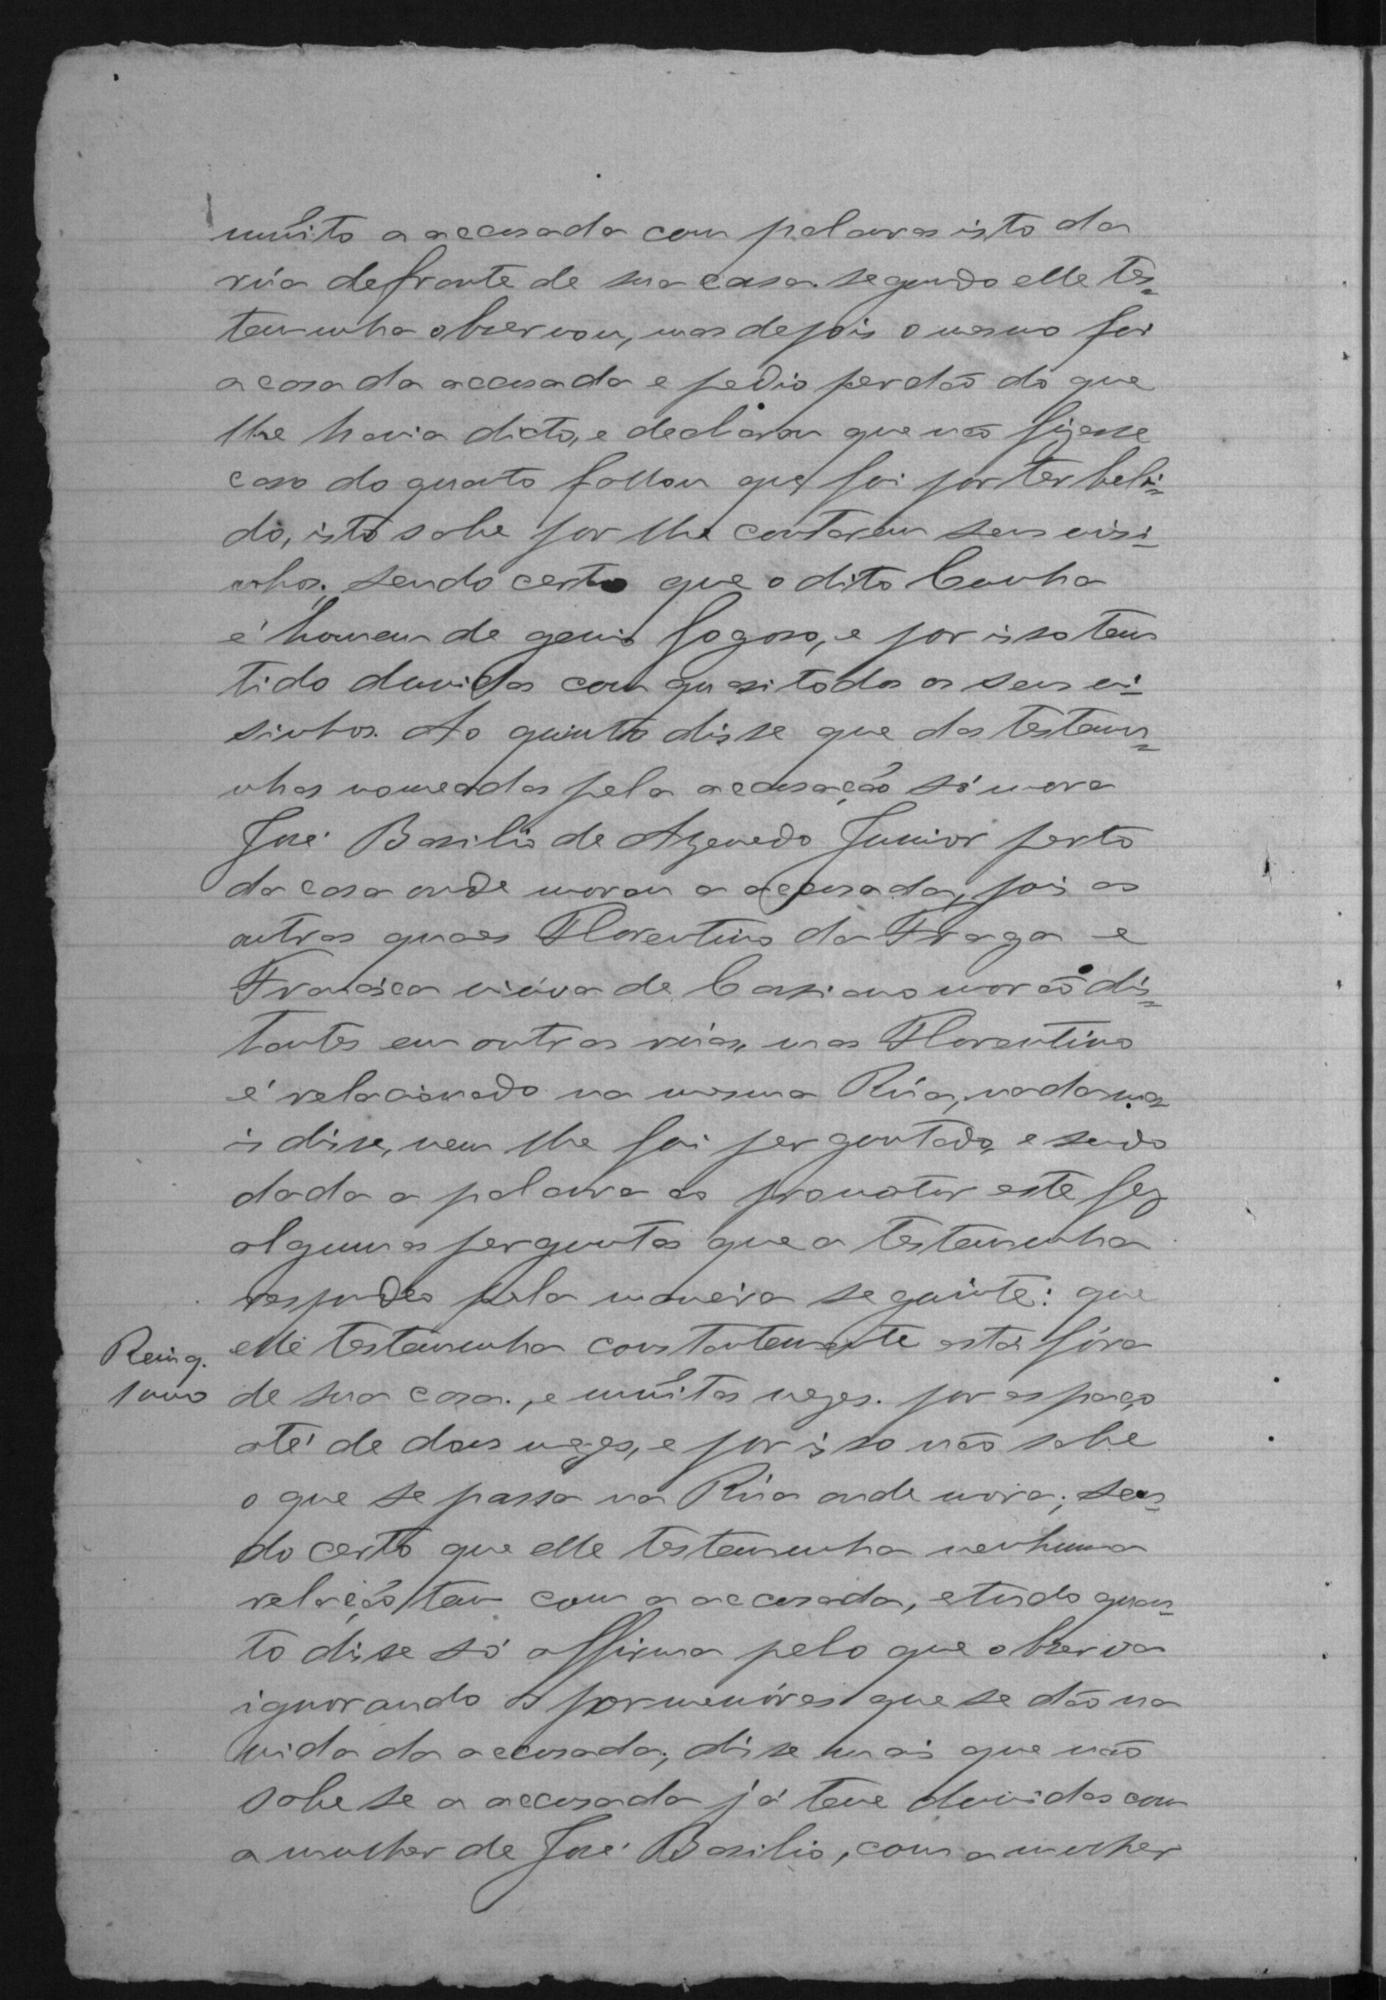 muito a accusada com palavras isto da
rúa defronte de sua casa segundo elle tes-
temunha observou, mas depois o mesmo foi
a casa da accusada e pedio perdão do que
lhe havia dicto, e declarou que não fizesse
caso do quanto fallou que foi por ter bebi-
do, isto sabe por lhe contarem seus visi-
nhos; sendo certo que o dito Cunha
é homem de genio fogoso, e por isso tem
tido duvidas com quasi todos os seus vi-
sinhos. Ao quinto disse que das testemu-
nhas nomeadas pela accusação só mora
José Basilio de Azevedo Junior perto
da casa onde morou a accusada, pois as
outras quaes Florentino da Fraga e
Francisca viúva de Cassiano morão dis-
tantes em outras rúas, mas Florentino
é relacionado na mesma Rúa, nada ma-
is disse, nem lhe foi perguntado, e sendo
dada a palavra ao promotor este fez
algumas perguntas que a testemunha
respondeo pela maneira seguinte: que
elle testemunha constantemente está fóra
de sua casa, e muitas vezes. por espaço
até de dous mezes, e por isso não sabe
o que se passa na Rúa onde mora; sen-
do certo que elle testemunha nenhuma
relação tem com a accusada, e tudo quan-
to disse só affirma pelo que observa
ignorando os pormenóres que se dão na
vida da accusada; disse mais que não
sabe se a accusada já teve duvidas com
a mulher de José Basilio, com a mulher
Reinq.